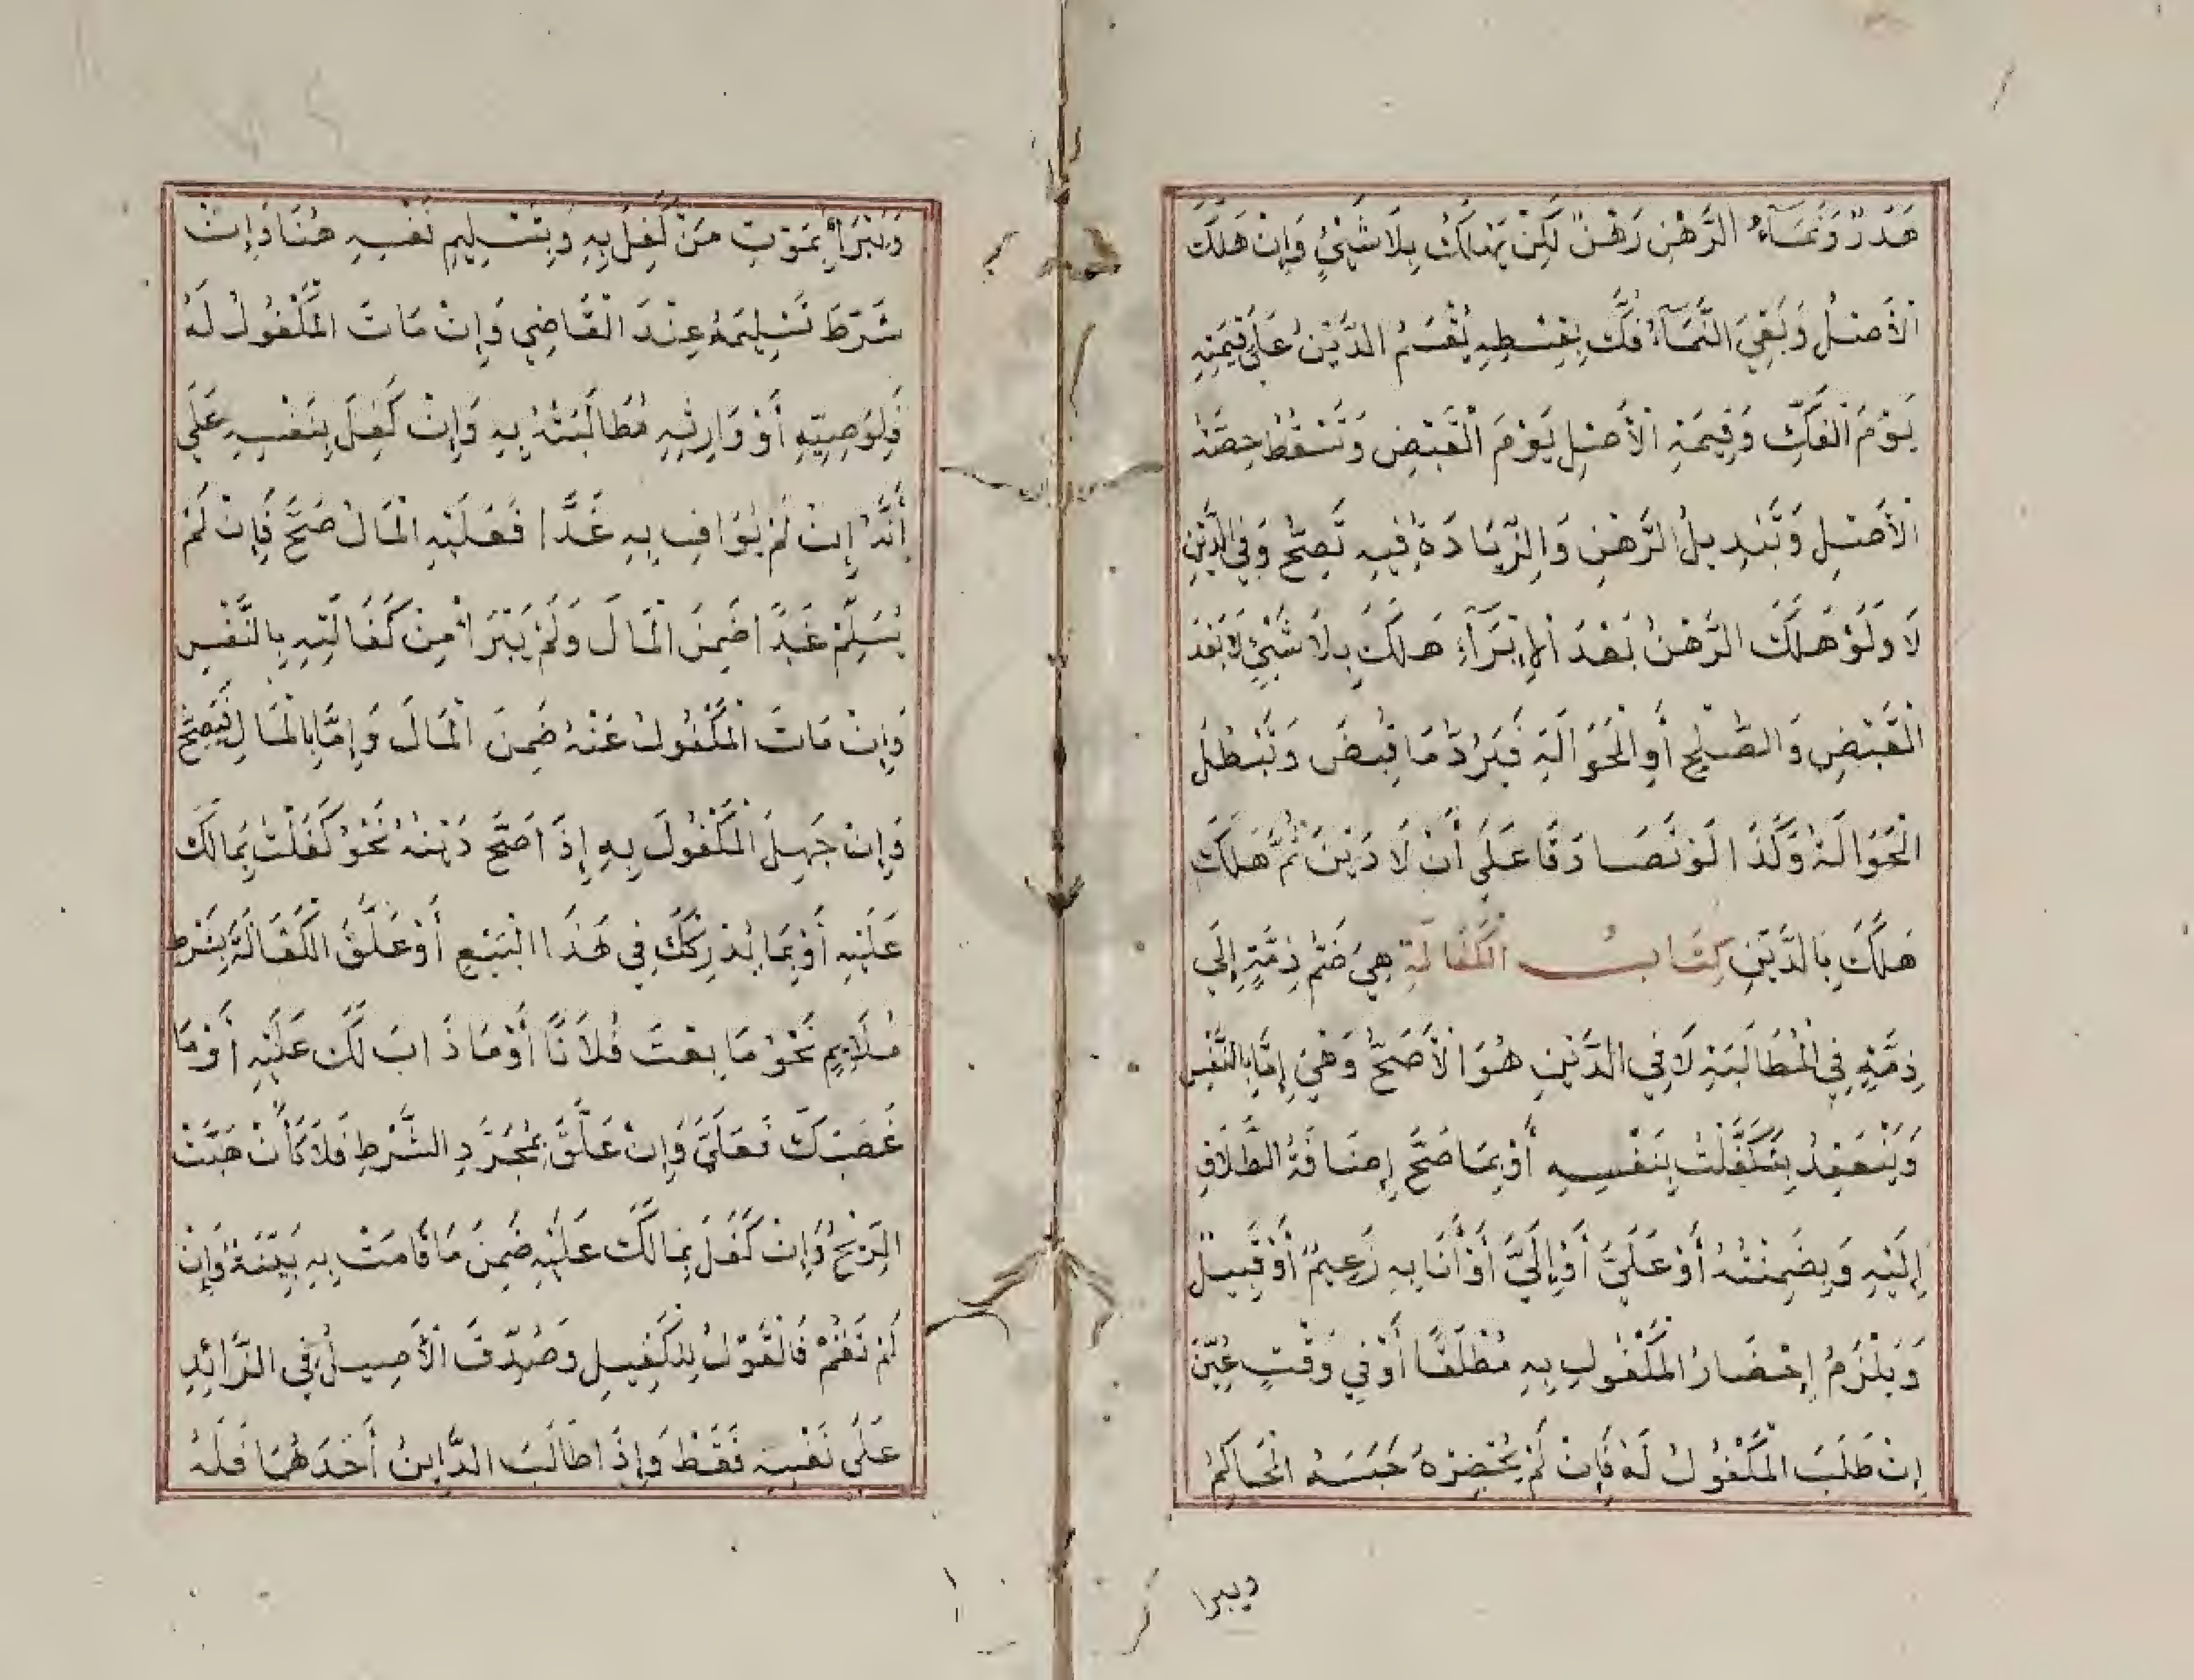 هَدَرٌ وَنَمَآءُ الرَّهْنِ رَهْنٌ لَكِنْ يَهْلَكُ بِلَا شَيْئٍ وَإِنْ هَلَكَ
الْأَصْلُ وَبَقِيَ النَّمَآءُ فُكَّ بِقِسْطِهِ يُقْسَمُ الدَّيْنُ عَلَى قِيمَتِهِ
يَوْمَ الْفَكِّ وَقِيمَةِ الْأَصْلِ يَوْمَ الْقَبْضِ وَتَسْقُطُ حِصَّةُ
الْأَصْلِ وَتَبْدِيلُ الرَّهْنِ وَالزِّيَادَةُ فِيهِ تَصِحُّ وَفِي الدَّيْنِ
لَا وَلَوْ هَلَكَ الرَّهْنُ بَعْدَ الْإِبْرَآءِ هَلَكَ بِلَا شَيْئٍ لَا بَعْدَ
الْقَبْضِ وَالصُّلْحِ أَوِ الْحَوَالَةِ فَيَرُدُّ مَا قَبَضَ وَتَبْطُلُ
الْحَوَالَةُ وَكَذَا لَوْ تَصَادَقَا عَلَى أَنْ لَا دَيْنَ ثُمَّ هَلَكَ
هَلَكَ بِالدَّيْنِ كِتَابُ الْكَفَالَةِ هِيَ ضَمُّ ذِمَّةٍ إِلَى
ذِمَّةٍ فِي الْمُطَالَبَةِ لَا فِي الدَّيْنِ هُوَ الْأَصَحُّ وَهِيَ إِمَّا بِالنَّفْسِ
وَيَنْعَقِدُ بِتَكَفَّلْتُ بِنَفْسِهِ أَوْ بِمَا صَحَّ إِضَافَةُ الطَّلَاقِ
إِلَيْهِ وَبِضَمِنْتُهُ أَوْ عَلَيَّ أَوْ إِلَيَّ أَوْ أَنَا بِهِ زَعِيمٌ أَوْ قَبِيلٌ
وَيَلْزَمُ إِحْضَارُ الْمَكْفُولِ بِهِ مُطْلَقًا أَوْ فِي وَقْتٍ عُيِّنَ
إِنْ طَلَبَ الْمَكْفُولُ لَهُ فَإِنْ لَمْ يُحْضِرْهُ حَبَسَهُ الْحَاكِمُ
ويبرا
وَيَبْرَأُ بِمَوْتِ مَنْ كَفَلَ بِهِ وَبِتَسْلِيمِ نَفْسِهِ هُنَا وَإِنْ
شَرَطَ تَسْلِيمَهُ عِنْدَ الْقَاضِي وَإِنْ مَاتَ الْمَكْفُولُ لَهُ
فَلِوَصِيِّهِ أَوْ وَارِثِهِ مُطَالَبَتُهُ بِهِ وَإِنْ كَفَلَ بِنَفْسِهِ عَلَى
أَنَّهُ إِنْ لَمْ يُوَافِ بِهِ غَدًا فَعَلَيْهِ الْمَالُ صَحَّ فَإِنْ لَمْ
يُسَلِّمْ غَدًا ضَمِنَ الْمَالَ وَلَمْ يَبْرَأْ مِنْ كَفَالَتِهِ بِالنَّفْسِ
وَإِنْ مَاتَ الْمَكْفُولُ عَنْهُ ضَمِنَ الْمَالَ وَإِمَّا بِالْمَالِ فَيَصِحُّ
وَإِنْ جَهِلَ الْمَكْفُولَ بِهِ إِذَا صَحَّ دَيْنُهُ نَحْوُ كَفَلْتُ بِمَا لَكَ
عَلَيْهِ أَوْ بِمَا يُدْرِكُكَ فِي هَذَا الْبَيْعِ أَوْ عَلَّقَ الْكَفَالَةَ بِشَرْطٍ
مُلَايِمٍ نَحْوُ مَا بِعْتَ فُلَانًا أَوْ مَا ذَابَ لَكَ عَلَيْهِ أَوْ مَا
غَصَبَكَ فَعَلَيَّ وَإِنْ عَلَّقَ بِمُجَرَّدِ الشَّرْطِ فَلَا كَأَنْ هَبَّتْ
الرِّيْحُ وَإِنْ كَفَلَ بِمَا لَكَ عَلَيْهِ ضَمِنَ مَا قَامَتْ بِهِ بَيِّنَةٌ وَإِنْ
لَمْ تَقُمْ فَالْقَوْلُ لِلْكَفِيلِ وَصُدِّقَ الْأَصِيلُ فِي الزَّائِدِ
عَلَى نَفْسِهِ فَقَطْ وَإِذَا طَالَبَ الدَّايِنُ أَحَدَهُمَا فَلَهُ